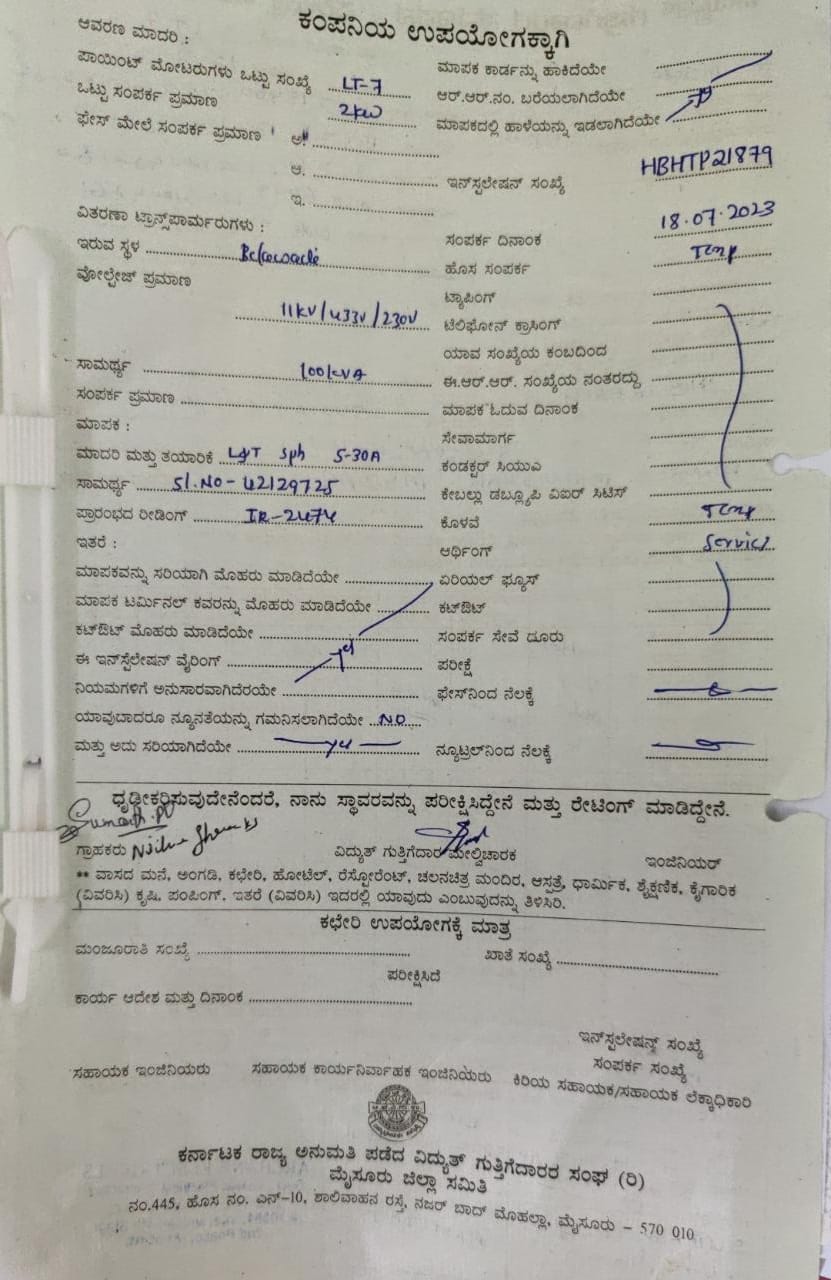 ಕಂಪನಿಯ ಉಪಯೋಗಕ್ಕಾಗಿ
ಆವರಣ ಮಾದರಿ :
ಪಾಯಿಂಟ್ ಮೋಟರುಗಳು ಒಟ್ಟು ಸಂಖ್ಯೆ LT-7
ಒಟ್ಟು ಸಂಪರ್ಕ ಪ್ರಮಾಣ 2kW
ಫೇಸ್ ಮೇಲೆ ಸಂಪರ್ಕ ಪ್ರಮಾಣ ಅ.
ಆ.
ಇ.
ವಿತರಣಾ ಟ್ರಾನ್ಸ್‌ಪಾರ್ಮರುಗಳು :
ಇರುವ ಸ್ಥಳ
ವೋಲ್ಟೇಜ್ ಪ್ರಮಾಣ
11KV/433V/230V
ಸಾಮರ್ಥ್ಯ 100KVA
ಸಂಪರ್ಕ ಪ್ರಮಾಣ
ಮಾಪಕ :
ಮಾದರಿ ಮತ್ತು ತಯಾರಿಕೆ L&T Sph 5-30A
ಸಾಮರ್ಥ್ಯ Sl.NO-42129725
ಪ್ರಾರಂಭದ ರೀಡಿಂಗ್ IR-2474
ಇತರೆ :
ಮಾಪಕವನ್ನು ಸರಿಯಾಗಿ ಮೊಹರು ಮಾಡಿದೆಯೇ
ಮಾಪಕ ಟರ್ಮಿನಲ್ ಕವರನ್ನು ಮೊಹರು ಮಾಡಿದೆಯೇ
ಕಟ್‌ಔಟ್ ಮೊಹರು ಮಾಡಿದೆಯೇ
ಈ ಇನ್‌ಸ್ಟೆಲೇಷನ್ ವೈರಿಂಗ್
ನಿಯಮಗಳಿಗೆ ಅನುಸಾರವಾಗಿದೆರಯೇ
ಯಾವುದಾದರೂ ನ್ಯೂನತೆಯನ್ನು ಗಮನಿಸಲಾಗಿದೆಯೇ NO
ಮತ್ತು ಅದು ಸರಿಯಾಗಿದೆಯೇ
ಮಾಪಕ ಕಾರ್ಡನ್ನು ಹಾಕಿದೆಯೇ
ಆರ್.ಆರ್.ನಂ. ಬರೆಯಲಾಗಿದೆಯೇ
ಮಾಪಕದಲ್ಲಿ ಹಾಳೆಯನ್ನು ಇಡಲಾಗಿದೆಯೇ
ಇನ್‌ಸ್ಟಲೇಷನ್ ಸಂಖ್ಯೆ HBHTP21879
ಸಂಪರ್ಕ ದಿನಾಂಕ 18.07.2023
ಹೊಸ ಸಂಪರ್ಕ Temp
ಟ್ಯಾಪಿಂಗ್
ಟೆಲಿಫೋನ್ ಕ್ರಾಸಿಂಗ್
ಯಾವ ಸಂಖ್ಯೆಯ ಕಂಬದಿಂದ
ಈ.ಆರ್.ಆರ್. ಸಂಖ್ಯೆಯ ನಂತರದ್ದು
ಮಾಪಕ ಓದುವ ದಿನಾಂಕ
ಸೇವಾಮಾರ್ಗ
ಕಂಡಕ್ಟರ್ ಸಿಯುಎ
ಕೇಬಲ್ಲು ಡಬ್ಲ್ಯೂಪಿ ವಿಐರ್ ಸಿಟಿಸ್
ಕೊಳವೆ Temp
ಆರ್ಥಿಂಗ್ Service
ಏರಿಯಲ್ ಫ್ಯೂಸ್
ಕಟ್‌ಔಟ್
ಸಂಪರ್ಕ ಸೇವೆ ದೂರು
ಪರೀಕ್ಷೆ
ಫೇಸ್‌ನಿಂದ ನೆಲಕ್ಕೆ
ನ್ಯೂಟ್ರಲ್‌ನಿಂದ ನೆಲಕ್ಕೆ
ಧೃಢೀಕರಿಸುವುದೇನೆಂದರೆ, ನಾನು ಸ್ಥಾವರವನ್ನು ಪರೀಕ್ಷಿಸಿದ್ದೇನೆ ಮತ್ತು ರೇಟಿಂಗ್ ಮಾಡಿದ್ದೇನೆ.
ಗ್ರಾಹಕರು ವಿದ್ಯುತ್ ಗುತ್ತಿಗೆದಾರ ಮೇಲ್ವಿಚಾರಕ ಇಂಜಿನಿಯರ್
** ವಾಸದ ಮನೆ, ಅಂಗಡಿ, ಕಛೇರಿ, ಹೋಟೆಲ್, ರೆಸ್ಟೋರೆಂಟ್, ಚಲನಚಿತ್ರ ಮಂದಿರ, ಆಸ್ಪತ್ರೆ, ಧಾರ್ಮಿಕ, ಶೈಕ್ಷಣಿಕ, ಕೈಗಾರಿಕ
(ವಿವರಿಸಿ) ಕೃಷಿ, ಪಂಪಿಂಗ್, ಇತರೆ (ವಿವರಿಸಿ) ಇದರಲ್ಲಿ ಯಾವುದು ಎಂಬುವುದನ್ನು ತಿಳಿಸಿರಿ.
ಕಛೇರಿ ಉಪಯೋಗಕ್ಕೆ ಮಾತ್ರ
ಮಂಜೂರಾತಿ ಸಂಖ್ಯೆ ಖಾತೆ ಸಂಖ್ಯೆ
ಪರೀಕ್ಷಿಸಿದೆ
ಕಾರ್ಯ ಆದೇಶ ಮತ್ತು ದಿನಾಂಕ
ಇನ್‌ಸ್ಟಲೇಷನ್ ಸಂಖ್ಯೆ
ಸಂಪರ್ಕ ಸಂಖ್ಯೆ
ಸಹಾಯಕ ಇಂಜಿನಿಯರು ಸಹಾಯಕ ಕಾರ್ಯನಿರ್ವಾಹಕ ಇಂಜಿನಿಯರು ಕಿರಿಯ ಸಹಾಯಕ/ಸಹಾಯಕ ಲೆಕ್ಕಾಧಿಕಾರಿ
ಕರ್ನಾಟಕ ರಾಜ್ಯ ಅನುಮತಿ ಪಡೆದ ವಿದ್ಯುತ್ ಗುತ್ತಿಗೆದಾರರ ಸಂಘ (ರಿ)
ಮೈಸೂರು ಜಿಲ್ಲಾ ಸಮಿತಿ
ನಂ.445, ಹೊಸ ನಂ. ಎನ್-10, ಶಾಲಿವಾಹನ ರಸ್ತೆ, ನಜರ್ ಬಾದ್ ಮೊಹಲ್ಲಾ, ಮೈಸೂರು - 570 010